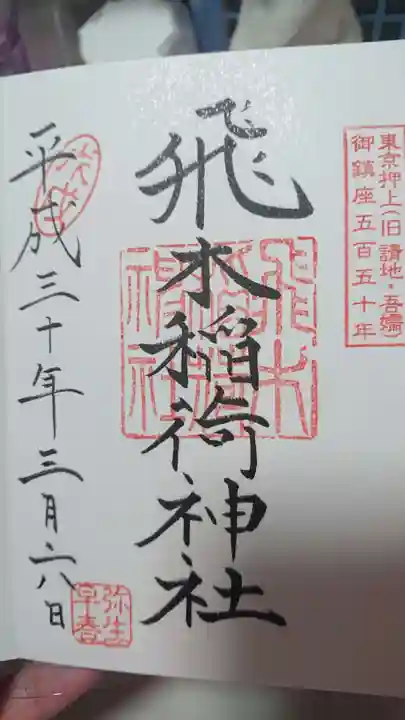 東京押上(旧請地・吾嬬)
御鎮座五百五十年
飛木稲荷神社
飛木稲荷神社
平成三十年三月六日
弥生
早春